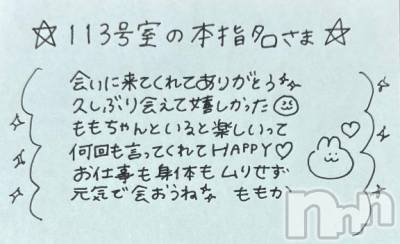 ☆113号室の本指名さま☆
会いに来てくれてありがとう
久しぶり会えて嬉しかった
ももちゃんといると楽しいって
何回も言ってくれてHAPPY♡
お仕事も身体もムリせず
元気で会おうね ももか